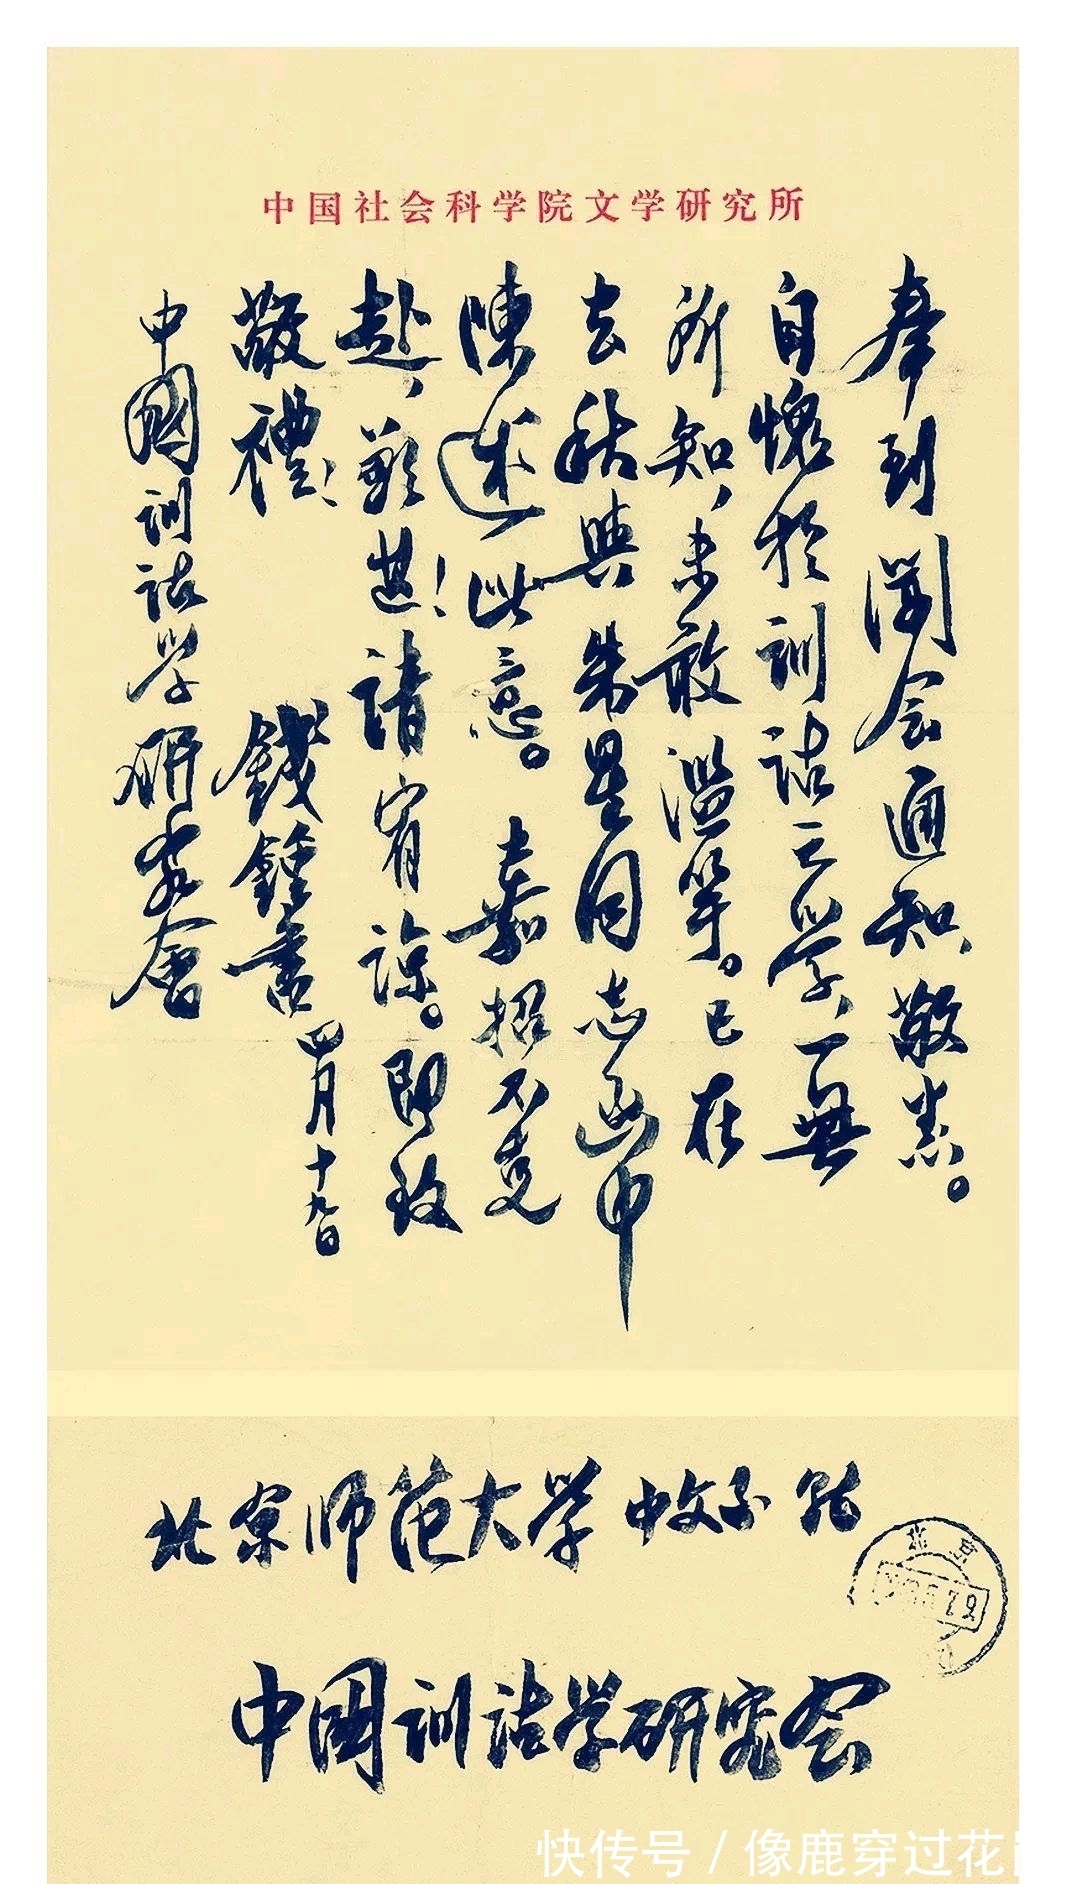 中国社会科学院文学研究所
奉到開会通知,敬悉。
自愧於训詁之学,一無
所知,未敢濫竽。已在
去秋與朱星同志函中
陳述此意。嘉招不克
赴,歉甚!請宥諒。即致
敬禮!
錢鍾書
四月十九日
中國训詁学研究會
北京师范大学中文系 转
北京
中國训詁学研究会
快传号 / 像鹿穿过花